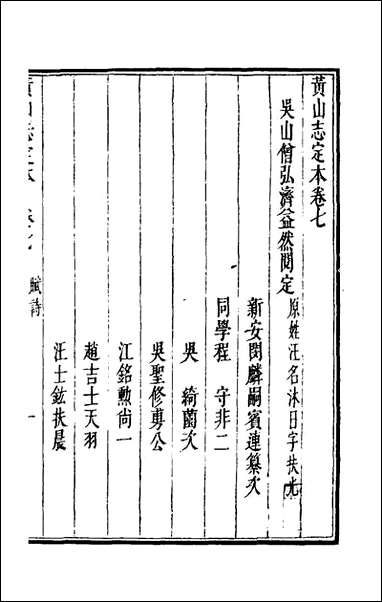 黃山志定本卷七
吳山僧弘濟益然閱定 原姓汪名沐日字扶光
新安閔麟嗣賓連纂次
同學程 守非二
吳 綺薗次
吳聖修勇公
江銘勲尚一
趙吉士天羽
汪士鋐扶晨
黃山志定本 卷七 賦詩 一